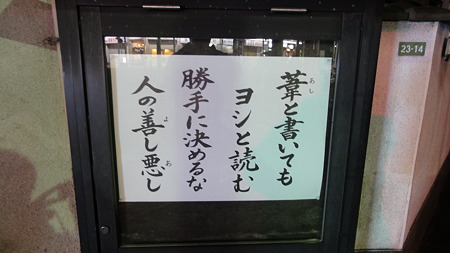 葦と書いても
ヨシと読む
勝手に決めるな
人の善し悪し
あし
よ
あ
23-14